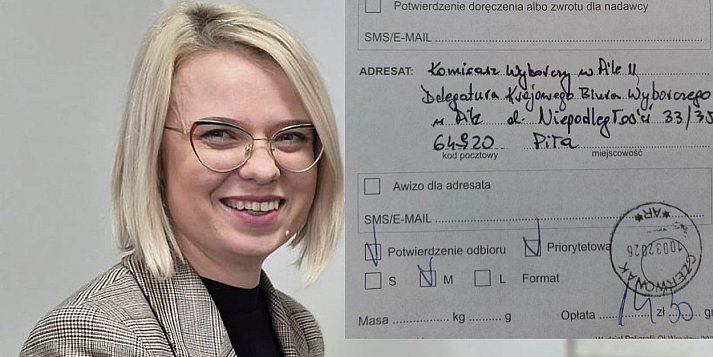 Potwierdzenie doręczenia albo zwrotu dla nadawcy
SMS/E-MAIL
ADRESAT: Komisarz Wyborczy w Pile II
Delegatura Krajowego Biura Wyborczego
w Pile al. Niepodległości 33/35
64-920 Piła
kod pocztowy miejscowość
Awizo dla adresata
SMS/E-MAIL
Potwierdzenie odbioru Priorytetowa
S M L Format
Masa kg g Opłata zł gr
*AR*
CZERWONAK